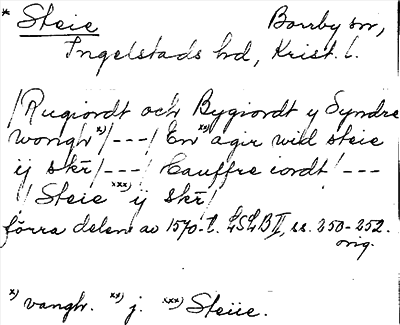 * Steie Borrby sn,
Ingelstads hd, Krist. l.
/Rugiordt och Bygiordt y Syndre
wongh x)/---/ En xx) agir wid steie
ij skr̄/---/ Cauffre iordt/ ---
/ Steie xxx) ij skr̄/
förra delen av 1570-t. LSLB II, ss. 250-252.
orig.
x) vangh. xx) j. xxx) Steiie.